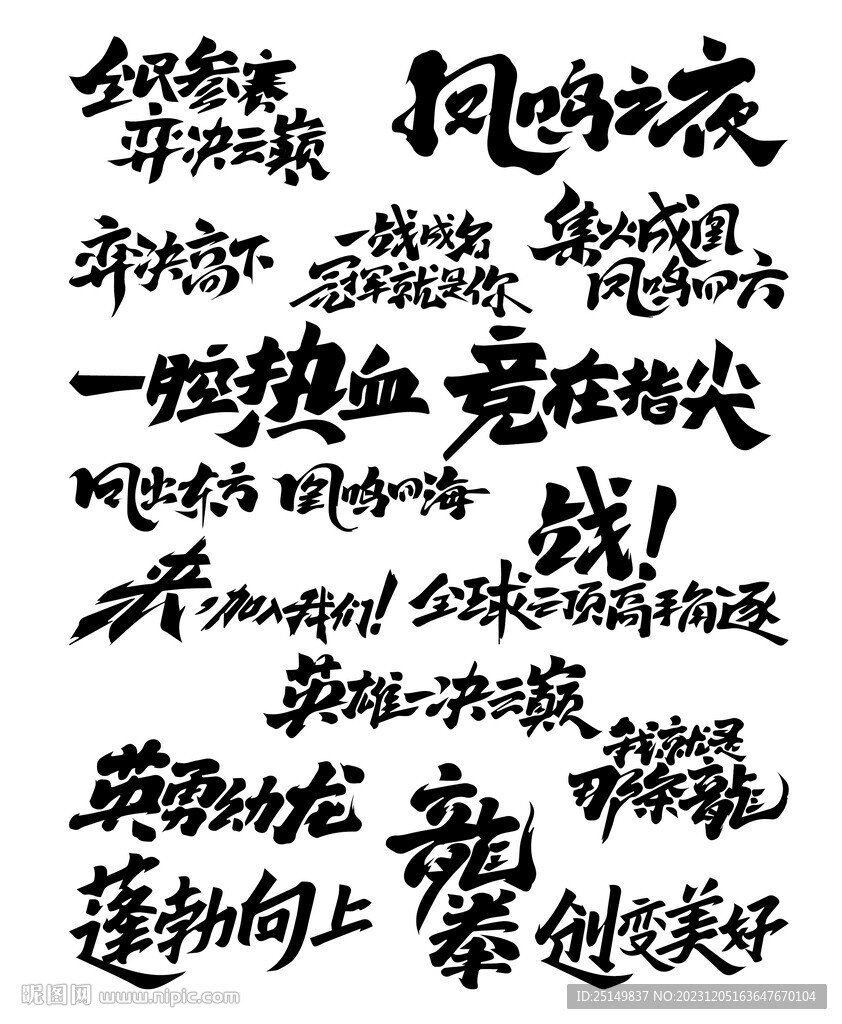 全民参赛
弈决云巅
凤鸣之夜
弈决高下
一战成名
冠军就是你
集火成凰
凤鸣四方
一腔热血 竞在指尖
凤出东方 凰鸣四海
战!
来,加入我们!
全球云顶高手角逐
英雄一决云巅
我就是
那条龍
英勇幼龙
龍
拳
蓬勃向上
创变美好
昵图网 www.nipic.com
ID:25149837 NO:20231205163647670104